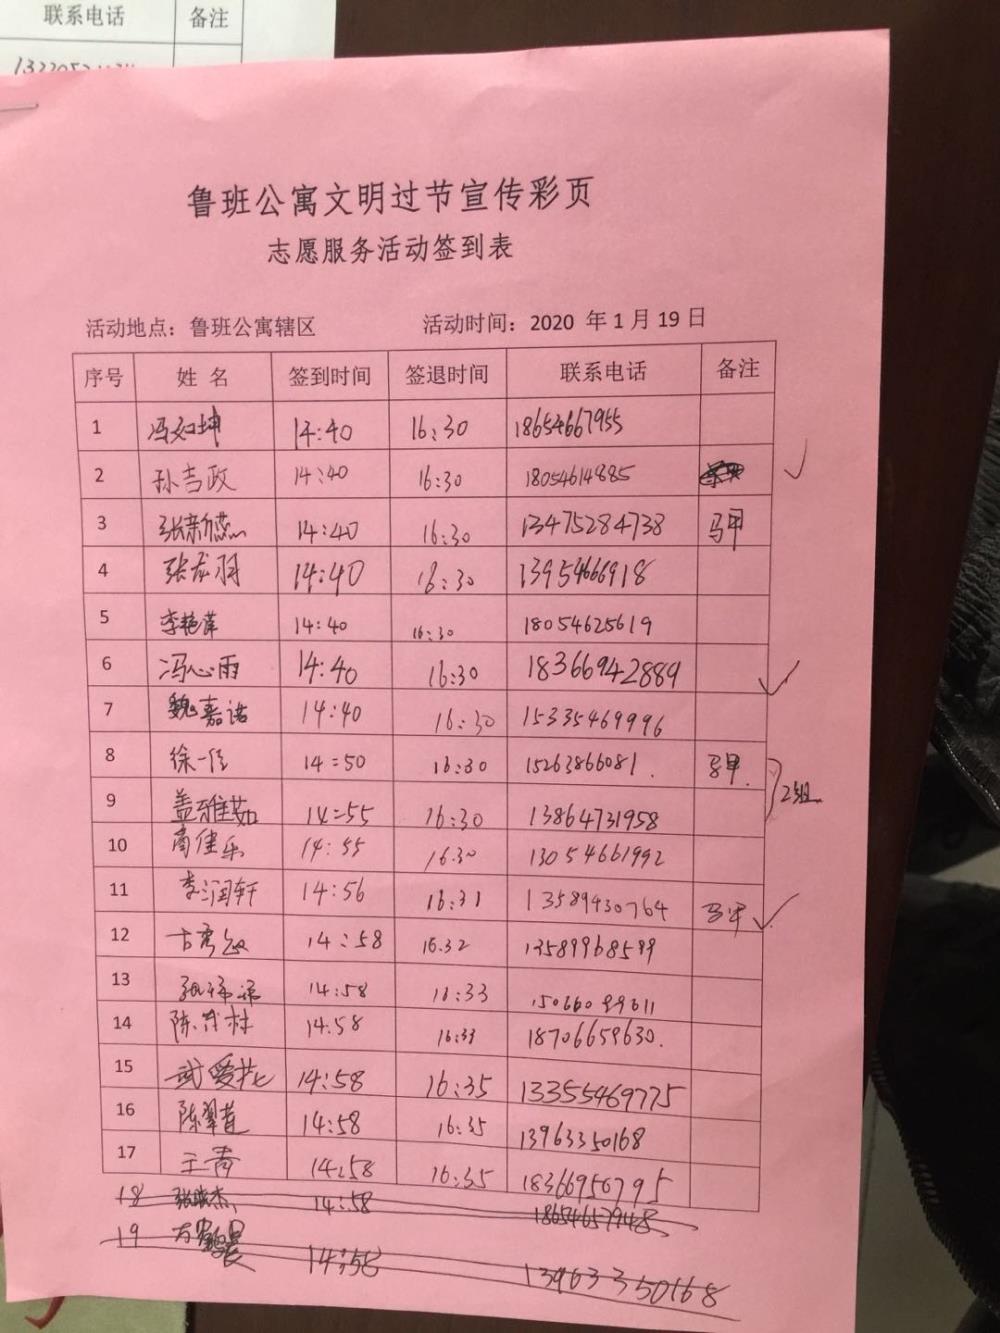 联系电话 备注
鲁班公寓文明过节宣传彩页
志愿服务活动签到表
活动地点：鲁班公寓辖区 活动时间：2020 年1月19日
序号 姓名 签到时间 签退时间 联系电话 备注
1 冯如坤 14:40 16:30 18654667955
2 孙吉政 14:40 16:30 18054614885
3 张新蕊 14:40 16:30 13475284738 马甲
4 张龙羽 14:40 16:30 13954666918
5 李艳萍 14:40 16:30 18054625619
6 冯心雨 14:40 16:30 18366942889
7 魏嘉诺 14:40 16:30 15335469996
8 徐一 14:50 16:30 15263866081. 马甲.
2组
9 盖雅茹 14:55 16:30 13864731958
10 高佳乐 14:55 16.30 13054661992
11 李润轩 14:56 16:31 13589430764 马甲
12 14:58 16.32 13589968599
13 14:58 16:33
14 陈茂村 14:58 16:33 18706659630.
15 武爱花 14:58 16:35 13355469775
16 陈翠莲 14:58 16:35 13963350168
17 王青 14:58 16:35 18366956795
18 张晓杰 14:58
19 14:58 13963350168